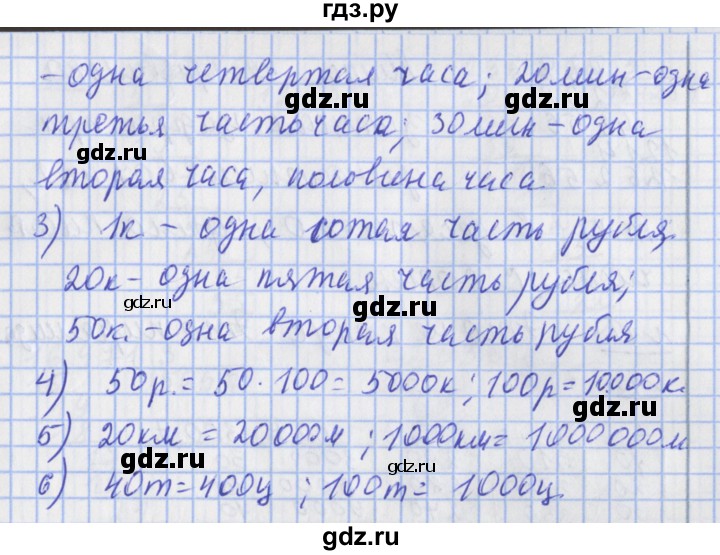 гдз.ру
-одна четвертая часа; 20мин-одна
gdz.ru gdz.ru
третья часть часа; 30мин-одна
gdz.ru
вторая часа, половина часа
gdz.ru
3) 1к - одна сотая часть рубля,
20к-одна пятая часть рубля;
gdz.ru gdz.ru
50к.-одна вторая часть рубля
4) 50р.=50·100=5000к; 100р=10000к.
gdz.ru gdz.ru
5) 20км = 20000м; 1000км=1000000м
gdz.ru
6) 40т=400ц; 100т= 1000ц.
gdz.ru
gdz.ru